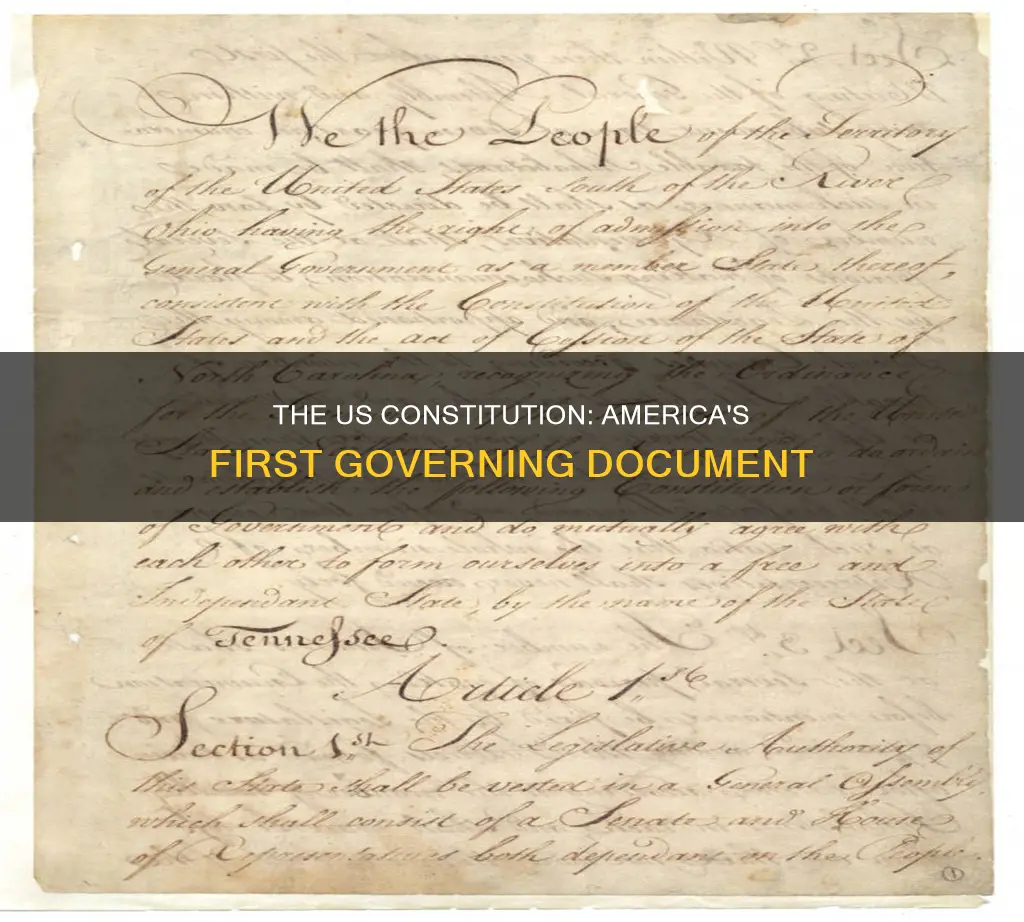 We the People of the Territory
of the United States South of the River
Ohio having the right of admission into the
General Government as a member State thereof,
consistent with the Constitution of the United
States and the act of Cession of the State of
North Carolina, recognizing the Ordinance
THE US CONSTITUTION: AMERICA'S
FIRST GOVERNING DOCUMENT
of Government and do mutually agree with
each other to form ourselves into a free and
Independant State by the name of the State
of Tennessee.
Article 1.st
Section 1.st The Legislative Authority of
this State shall be vested in a General Assembly
which shall consist of a Senate and House
of Representatives both dependant on the People.
1